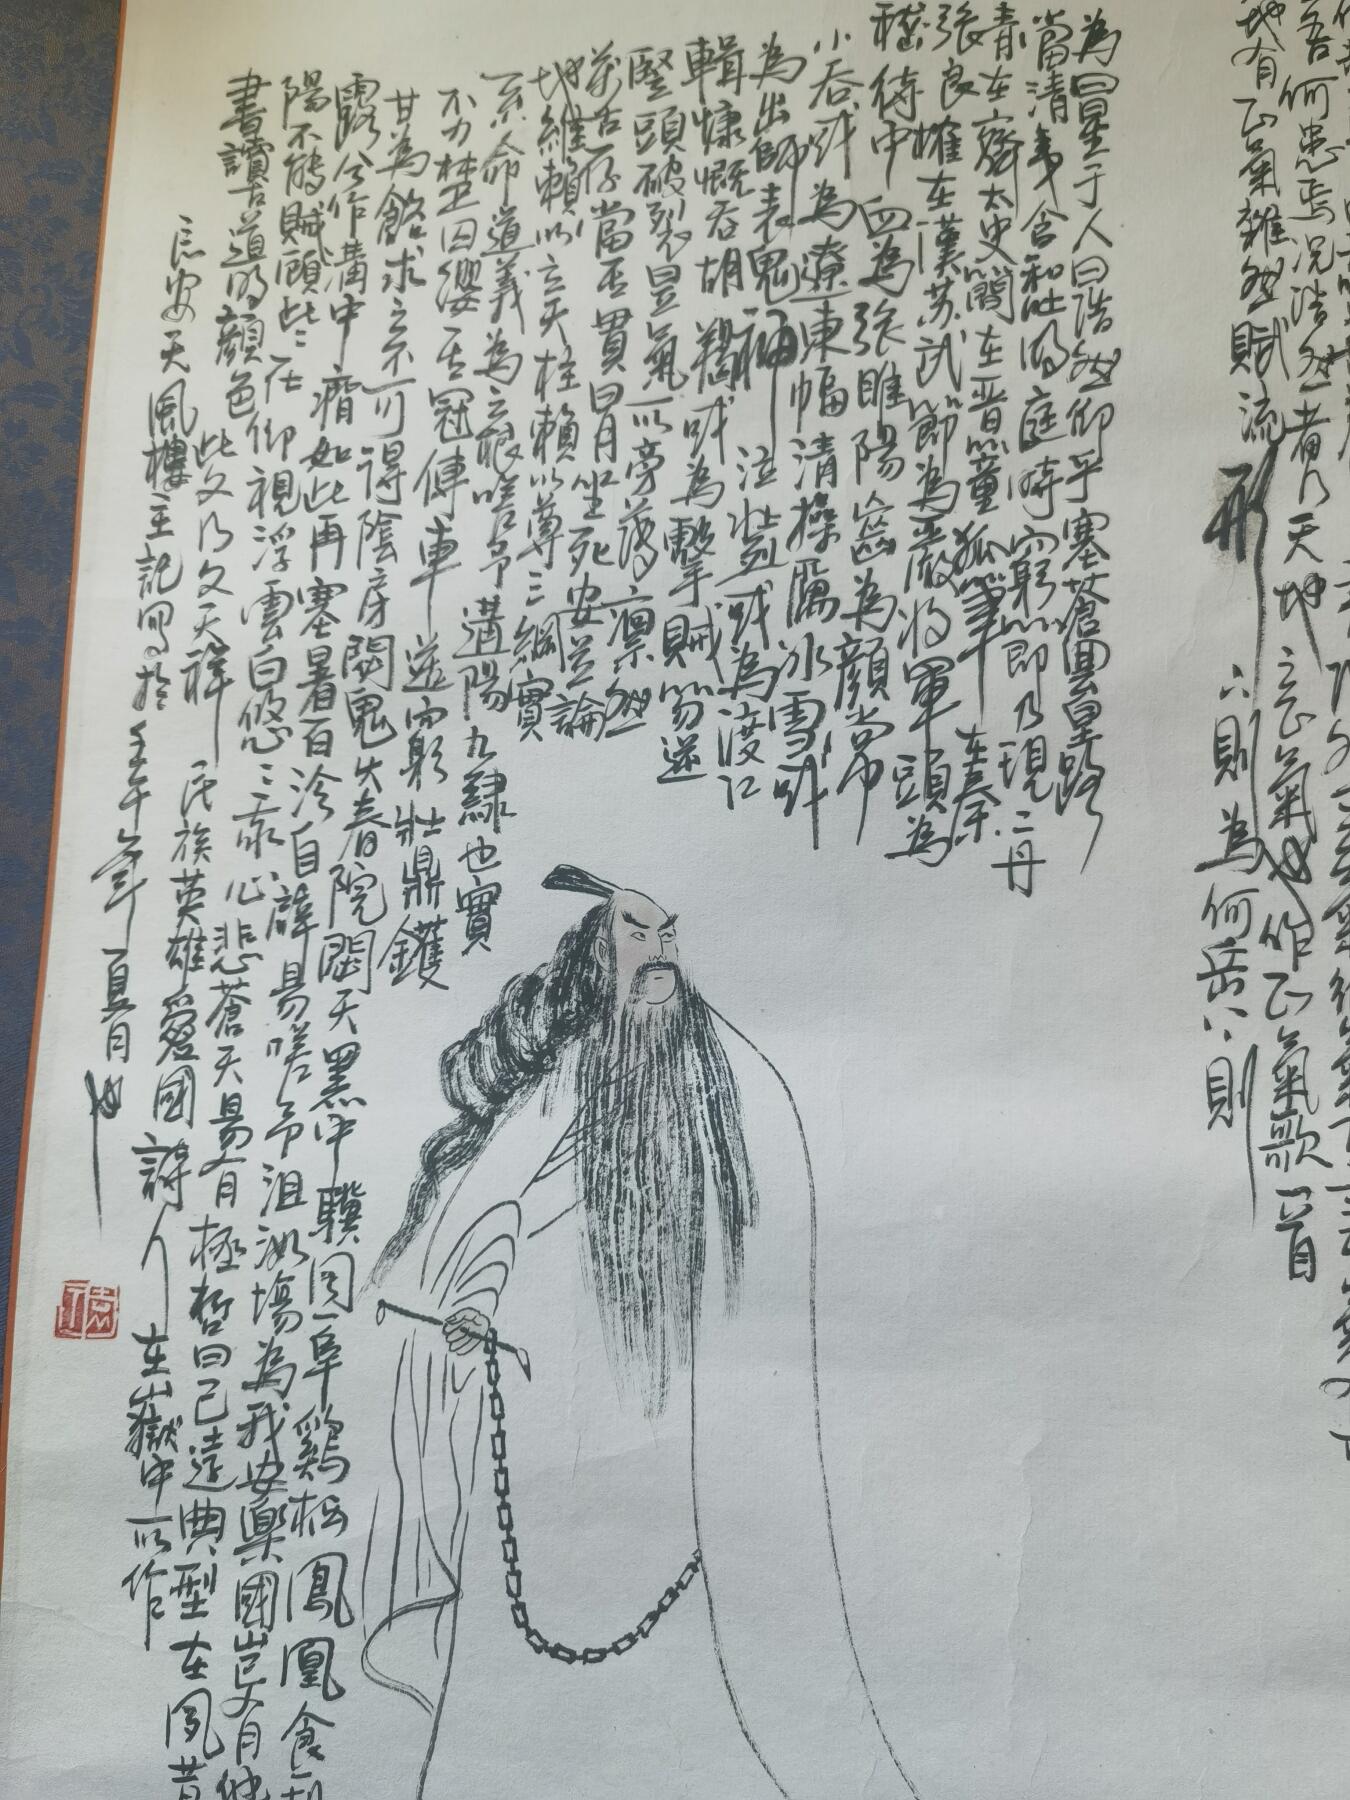 吾何患焉况浩然者乃天地之正氣也作正氣歌一首
地有正氣雜然賦流形
下則為河岳下則
為日星于人曰浩然仰乎塞蒼冥皇路
當清夷含和吐明庭時窮節乃現一二丹
青在齊太史簡在晋董狐筆在秦
張良椎在漢蘇武節為嚴將軍頭為
嵇侍中血為張睢陽齒為顏常
山舌或為遼東帽清操厲冰雪或
為出師表鬼神泣壯烈或為渡江
楫慷慨吞胡羯或為擊賊笏逆
竪頭破裂是氣所旁薄凛然
萬古存當其貫日月生死安足論
地維賴以立天柱賴以尊三綱實
系命道義為之根嗟予遘陽九隸也實
不力楚囚纓其冠傳車送窮北鼎鑊
甘為飴求之不可得陰房闃鬼火春院閟天黑牛驥同一皁鷄栖鳳凰食一朝
露分作溝中瘠如此再寒暑百沴自辟易嗟予沮洳場為我安樂國豈有他
陽不能賊顧此二在仰視浮雲白悠二我心悲蒼天曷有極哲曰已遠典型在夙昔
書讀古道明顏色
此文乃文天祥民族英雄愛國詩人在獄中所作
長安天風樓主記寫於壬午年夏月